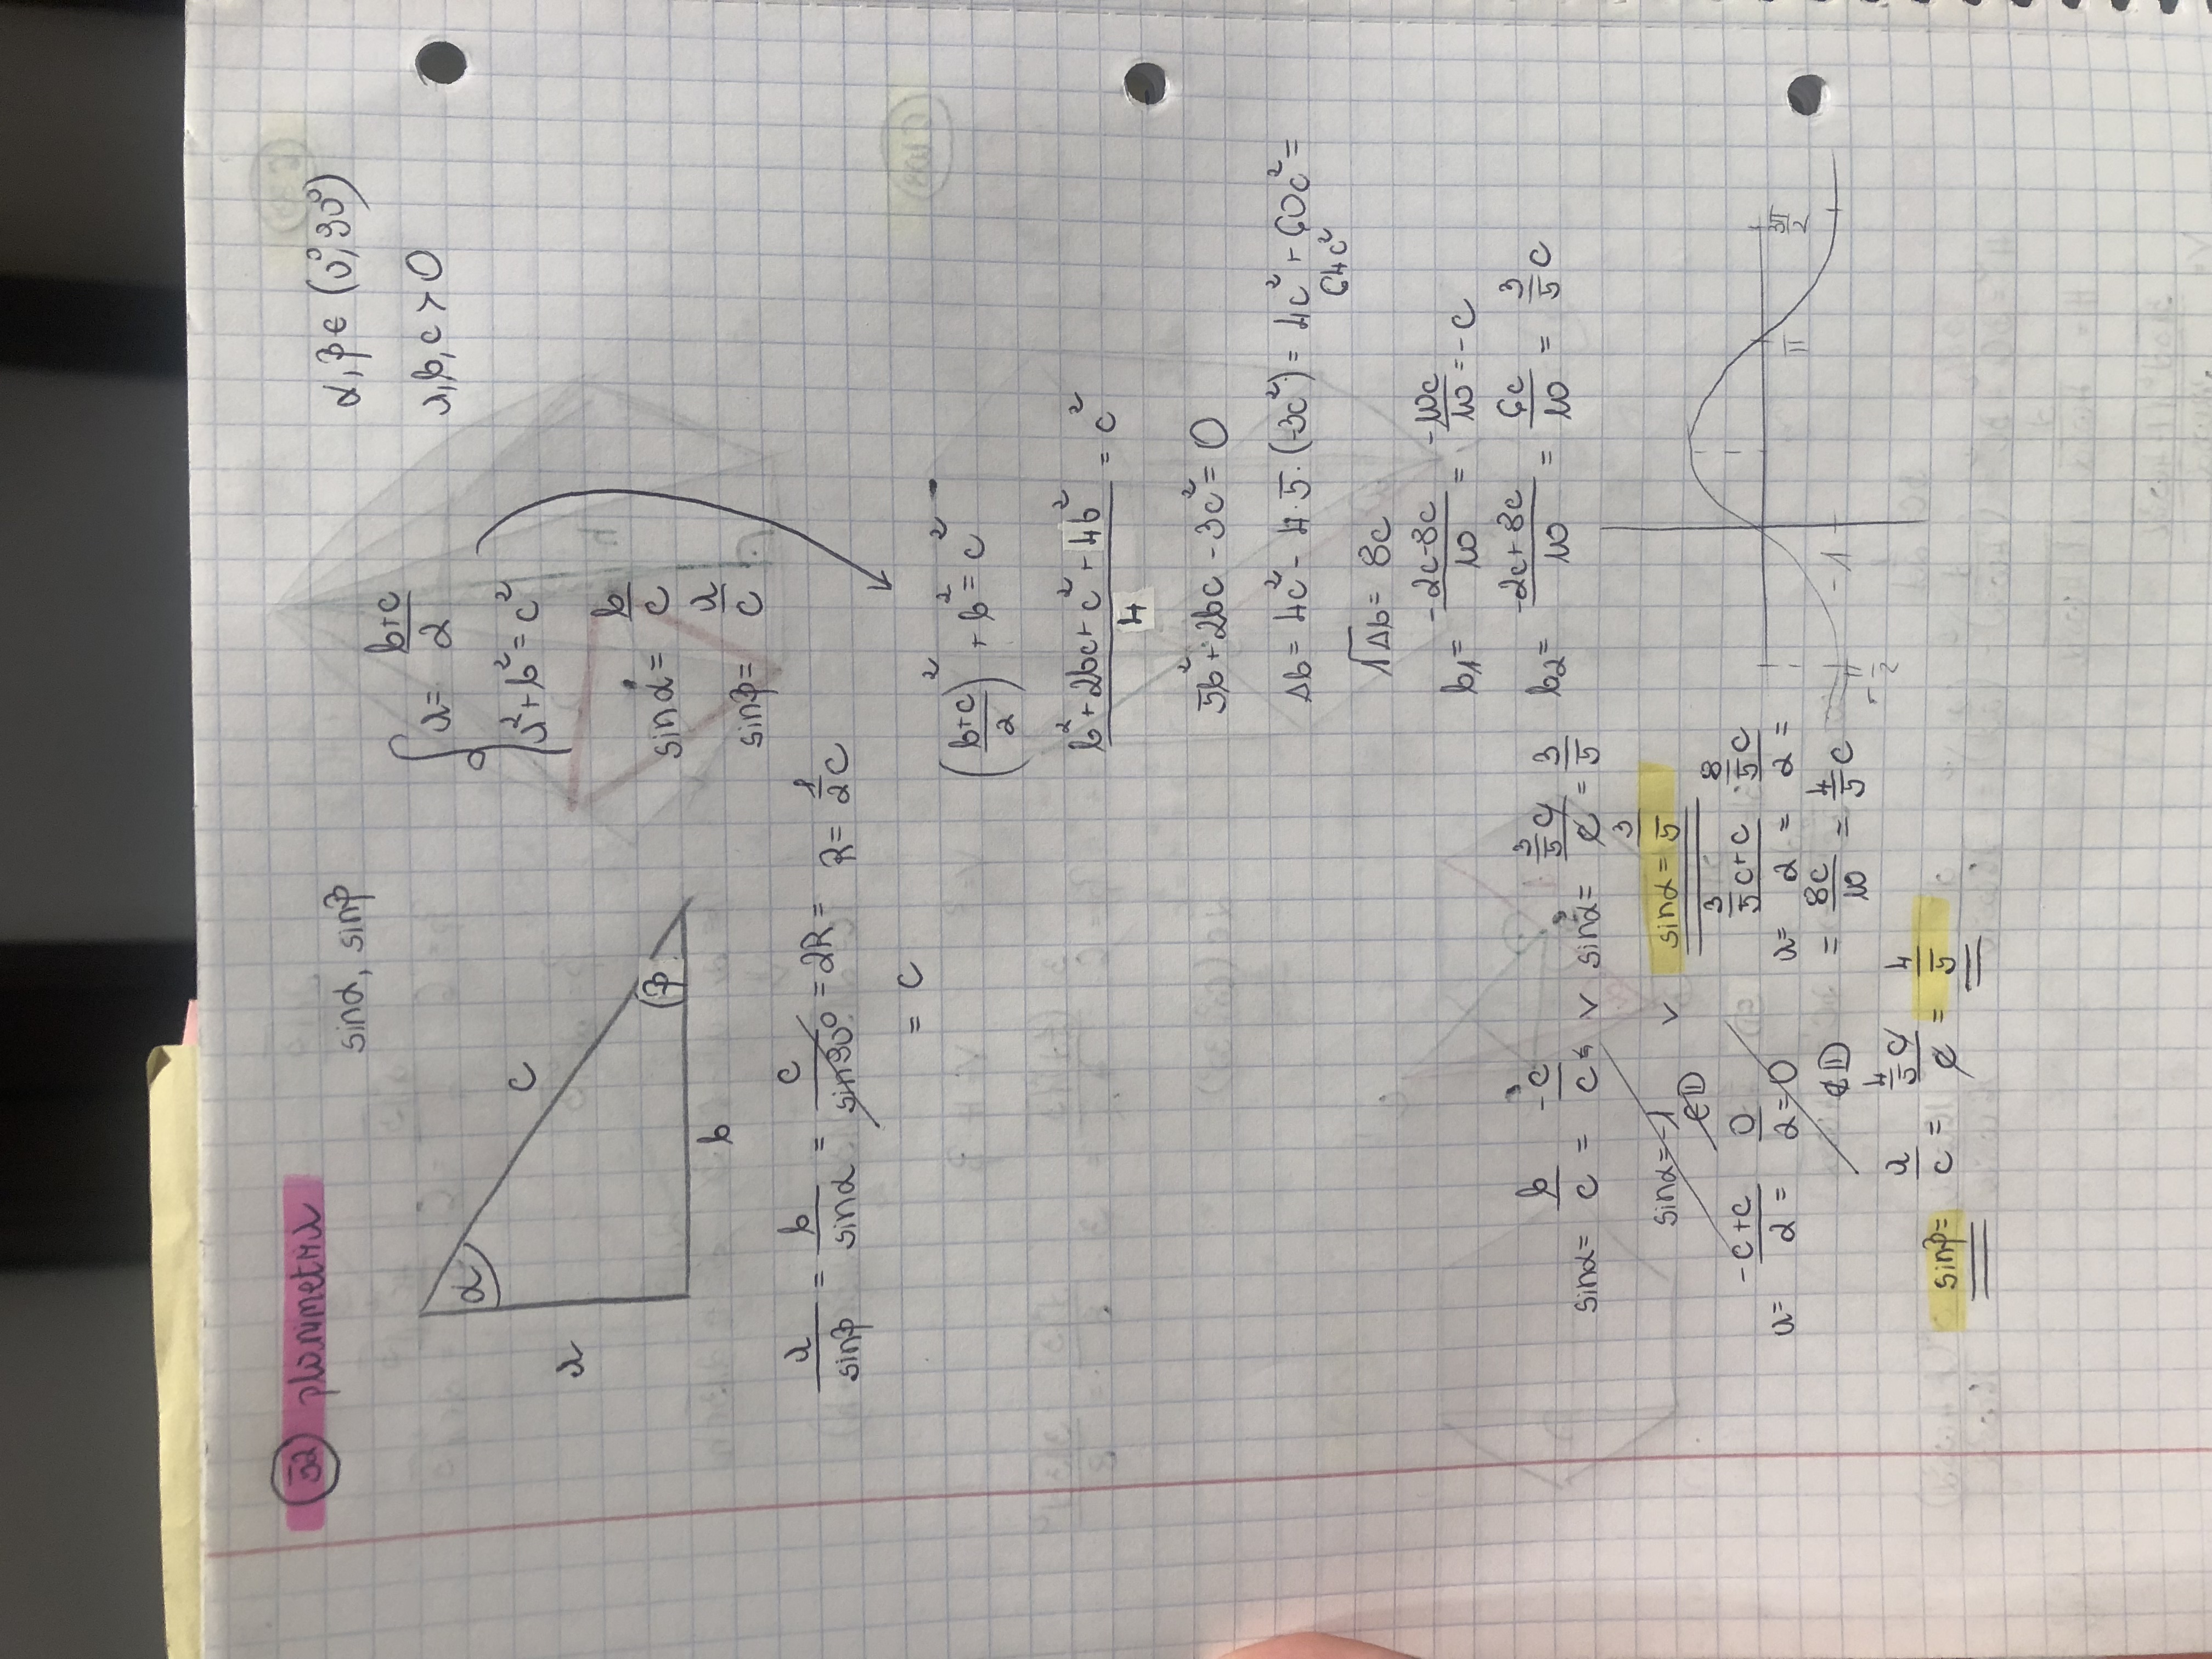 52 planimetria
sinα, sinβ
α, β ∈ (0°, 90°)
a, b, c > 0
α
c
a
β
b
a = (b+c)/2
a² + b² = c²
sinα = b/c
sinβ = a/c
a/sinβ = b/sinα = c/sin90° = 2R = R = 1/2 c
= c
((b+c)/2)² + b² = c²
(b² + 2bc + c² + 4b²)/4 = c²
5b² + 2bc - 3c² = 0
Δb = 4c² - 4·5·(-3c²) = 4c² + 60c² =
64c²
√Δb = 8c
b₁ = (-2c-8c)/10 = -10c/10 = -c
b₂ = (-2c+8c)/10 = 6c/10 = 3/5 c
sinα = b/c = -c/c = ∨ sinα = (3/5 c)/c = 3/5
sinα = -1 ∨ sinα = 3/5
∉D
a = (-c+c)/2 = 0/2 = 0
∉D
a = (3/5 c + c)/2 = (8/5 c)/2 =
= 8c/10 = 4/5 c
sinβ = a/c = (4/5 c)/c = 4/5
-π/2
-1
π
3π/2